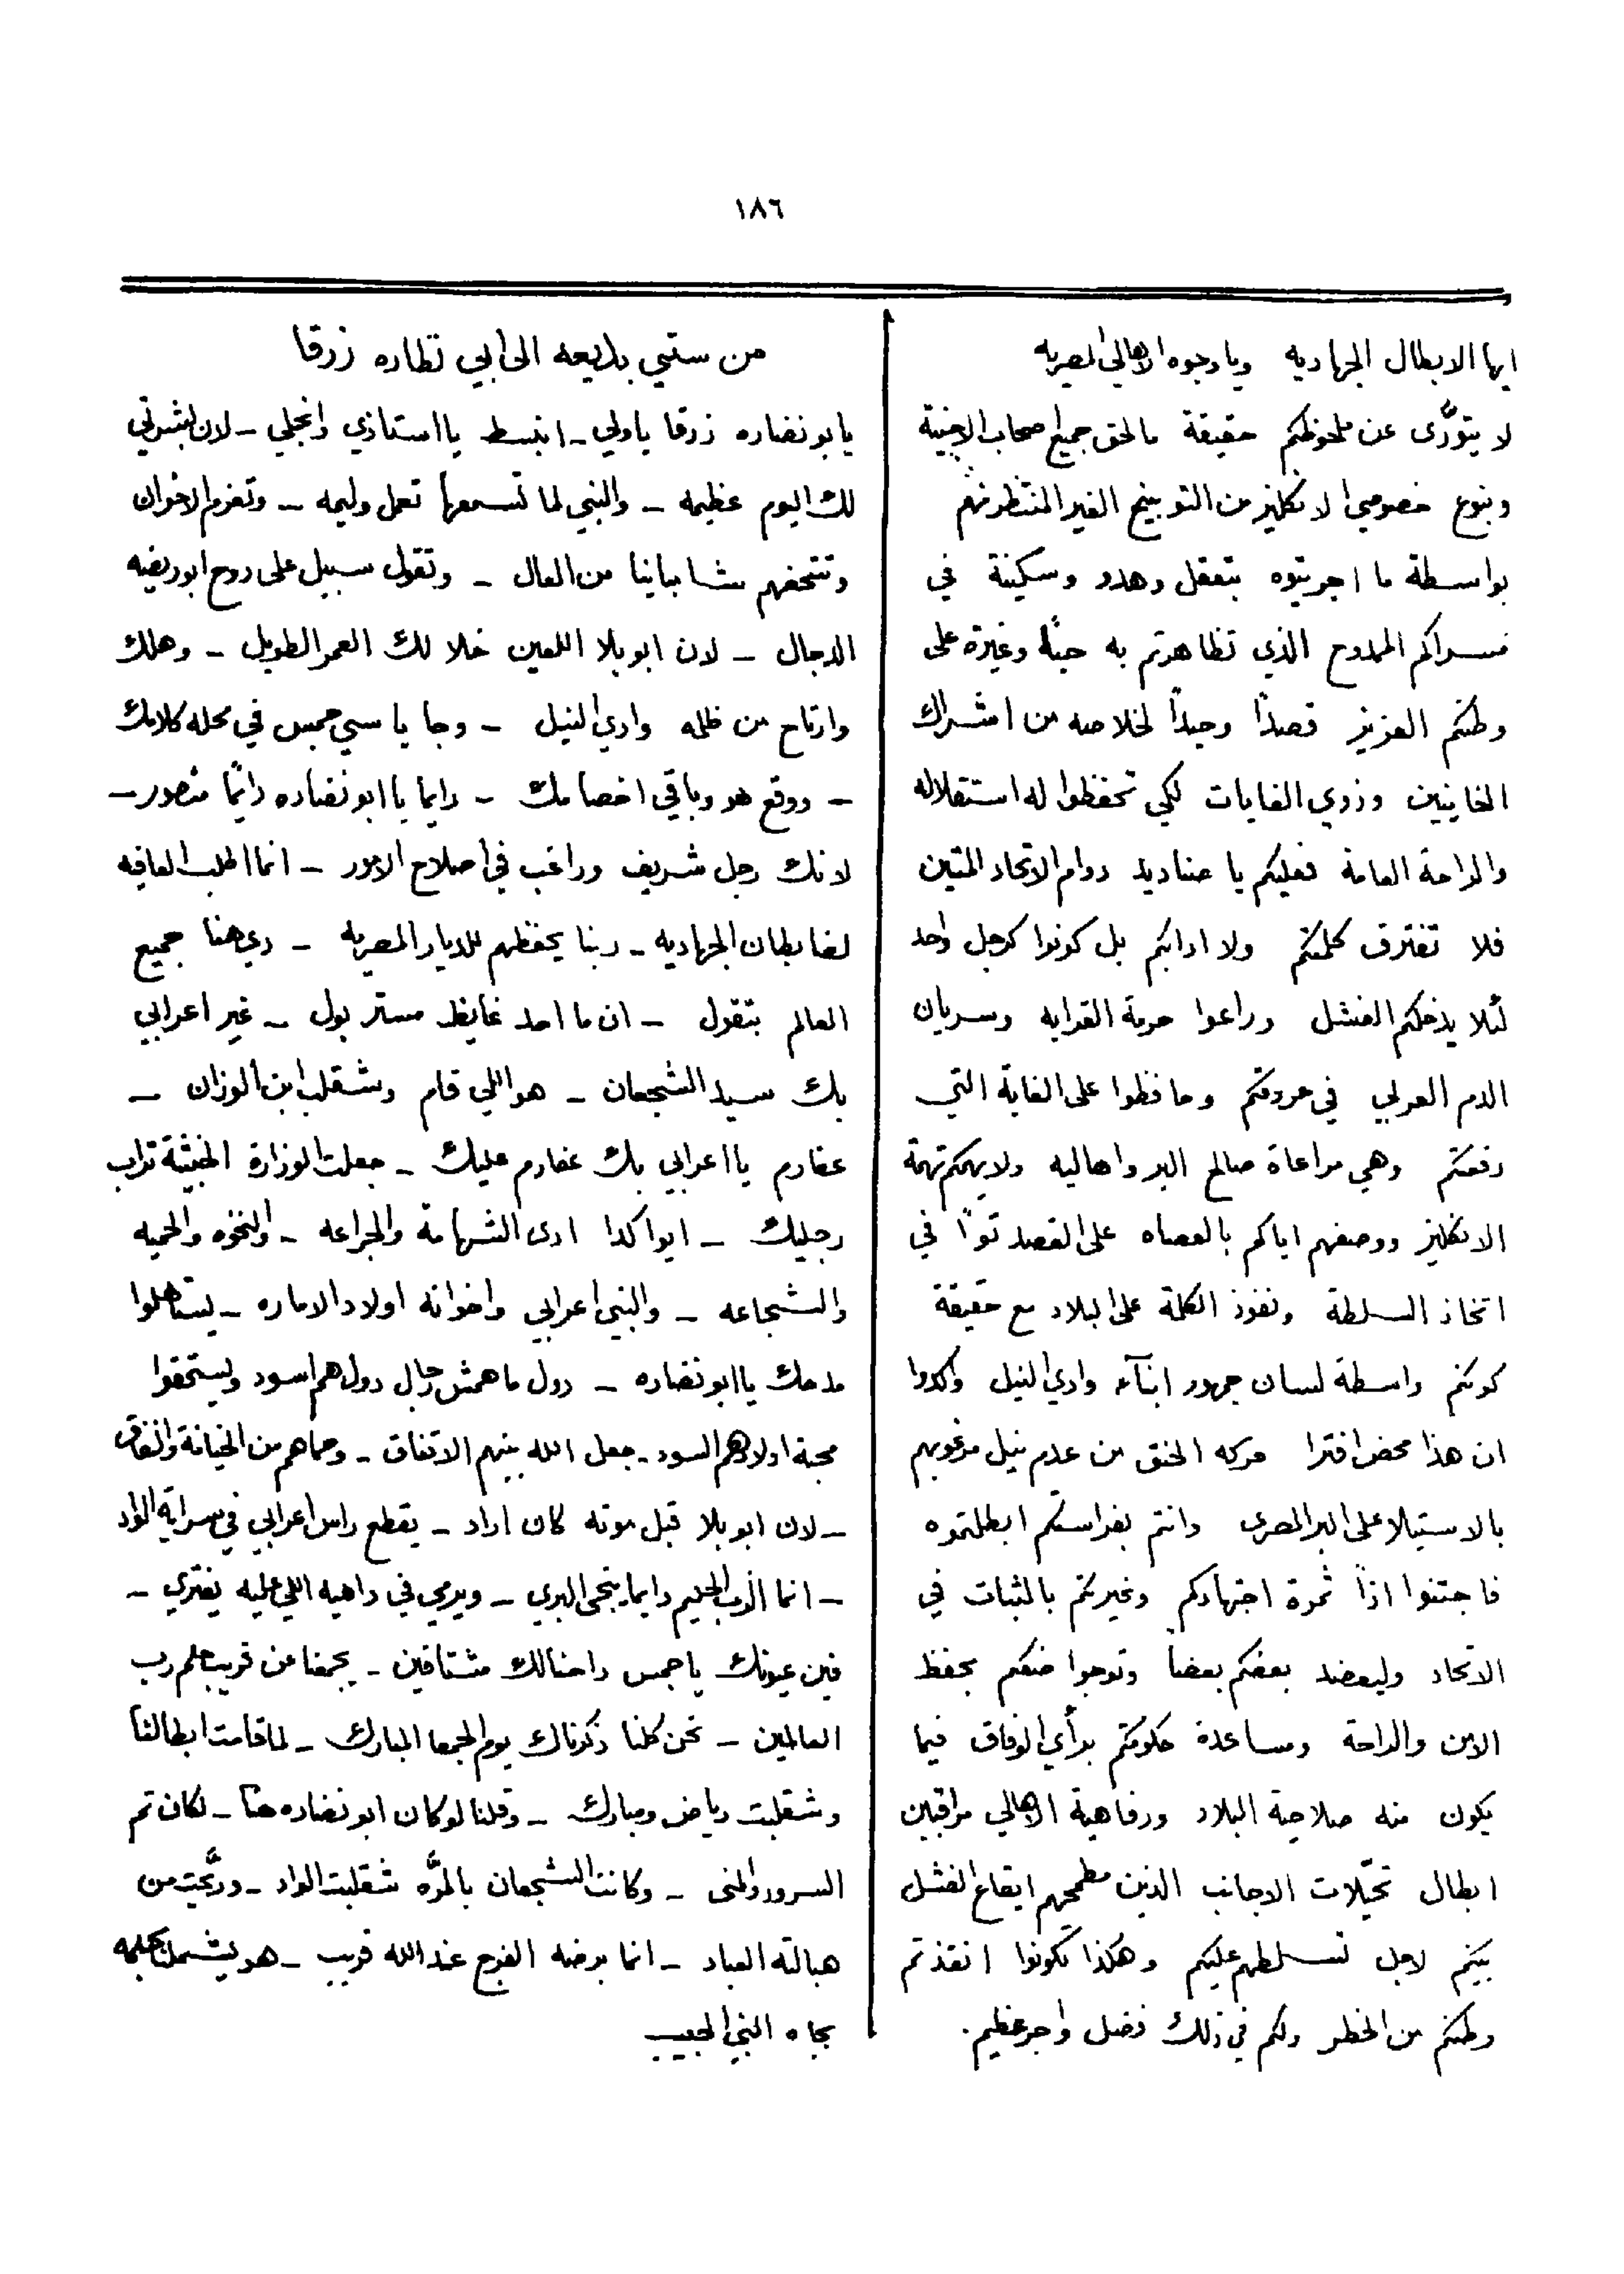 ١٨٦
ايها الابطال الجهاديه ويا وجوه الاهالي المصريه
لا يتورّى عن ملحوظكم حقيقة ما لحق جميع اصحاب الاجنبية
وبنوع خصوصي الانكليز من التوبيخ الغير المنتظر منهم
بواسطة ما اجريتوه بتعقل وهدو وسكينة في
مسراكم الممدوح الذي تظاهرتم به حبّا وغيرة على
وطنكم العزيز قصداً وحيداً لخلاصه من اشراك
الخاينين وذوي الغايات لكي تحفظوا له استقلاله
والراحة العامة فعليكم يا صناديد دوام الاتحاد المتين
فلا تفترق كلمتكم ولا ادابكم بل كونوا كرجل واحد
لئلا يدخلكم الفشل وراعوا حرمة القرابه وسريان
الدم العربي في عروقكم وحافظوا على الغاية التي
دفعتكم وهي مراعاة صالح البر واهاليه ولا يهمكم تهمة
الانكليز ووصفهم اياكم بالعصاه على القصد توًا في
اتخاذ السلطة ونفوذ الكلمة على البلاد مع حقيقة
كونكم واسطة لسان جمهور ابنآء وادي النيل واكدوا
ان هذا محض افترا حركه الخنق من عدم نيل مرغوبهم
بالاستيلا على البر المصرى وانتم بفراستكم ابطلتموه
فاجتنوا اذاً ثمرة اجتهادكم وغيرتكم بالثبات في
الاتحاد وليعضد بعضكم بعضاً وتوجوا صنعكم بحفظ
الامن والراحة ومساعدة حكومتكم برأي الوفاق فيما
يكون منه صلاحية البلاد ورفاهية الاهالي مراقبين
ابطال تخيّلات الاجانب الذين مطمحهم ايقاع الفشل
بينكم لاجل تسلطهم عليكم وهكذا تكونوا انقذتم
وطنكم من الخطر ولكم في ذلك فضل واجر عظيم.
من ستي بديعه الى ابي نظاره زرقا
يابو نضاره زرقا ياولي - انبسط يا استاذي وانجلي - لان بشرتي
لك اليوم عظيمه - والنبي لما تسمعها تعمل وليمه - وتعزم الاخوان
وتتحفهم بشامبانيا من العال - وتقول سبيل على روح ابو ريضه
الدجال - لان ابو بلا اللعين خلا لك العمر الطويل - وهلك
وارتاح من ظلمه وادي النيل - وجا يا سي جمس في محله كلامك
- ووقع هو وباقي اخصامك - دايما يا ابو نضاره دايمًا منصور -
لانك رجل شريف وراغب في اصلاح الامور - انما اطلب العافيه
لضابطان الجهاديه - ربنا يحفظهم للديار المصريه - دي هنا جميع
العالم بتقول - ان ما احد غايظ مستر بول - غير اعرابي
بك سيد الشجعان - هو اللي قام وشقلب ابن الوزان -
عفارم يا اعرابي بك عفارم عليك - جعلت الوزارة الخبيثة تراب
رجليك - ايوا كدا ادى الشهامة والجراعه - والنخوه والحميه
والشجاعه - والنبي اعرابي واخوانه اولاد الاماره - يستاهلوا
مدحك يا ابو نضاره - دول ما همش رجال دول هم اسود ويستحقوا
محبة اولادهم السود - جعل الله بينهم الاتفاق - وحماهم من الخيانة والنفاق
- لان ابو بلا قبل موته كان اراد - يقطع راس اعرابي في سراية الواد
- انما الرب الحليم دايما ينجى البري - ويرمي في داهيه اللي عليه يفتري -
فين عيونك يا جمس واحنا لك مشتاقين - يجمعنا عن قريب بحلم رب
العالمين - نحن كلنا ذكرناك يوم الجمعا المبارك - لما قامت ابطالنا
وشقلبت رياض ومبارك - وقلنا لو كان ابو نضاره هنا - لكان تم
السرور والهنى - وكانت الشجعان بالمرّه شقلبت الواد - وريّحت من
هبالته العباد - انما برضه الفرج عند الله قريب - هو يشملنا بحلمه
بجاه النبي الحبيب